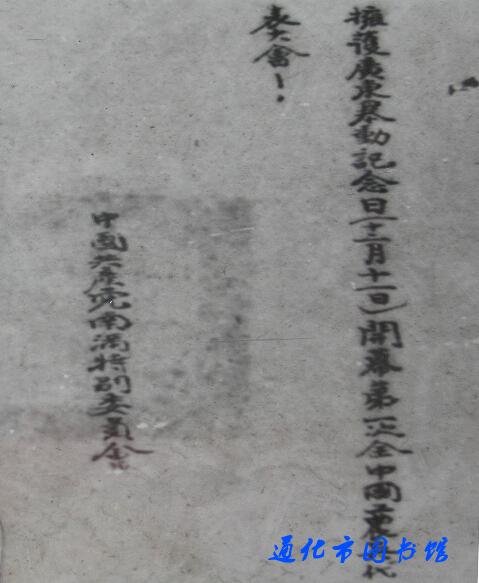 擁護廣東暴動記念日(十二月十一日)開幕第一次全中國工農代
表大會！
中國共產党南滿特別委員會
通化市图书馆